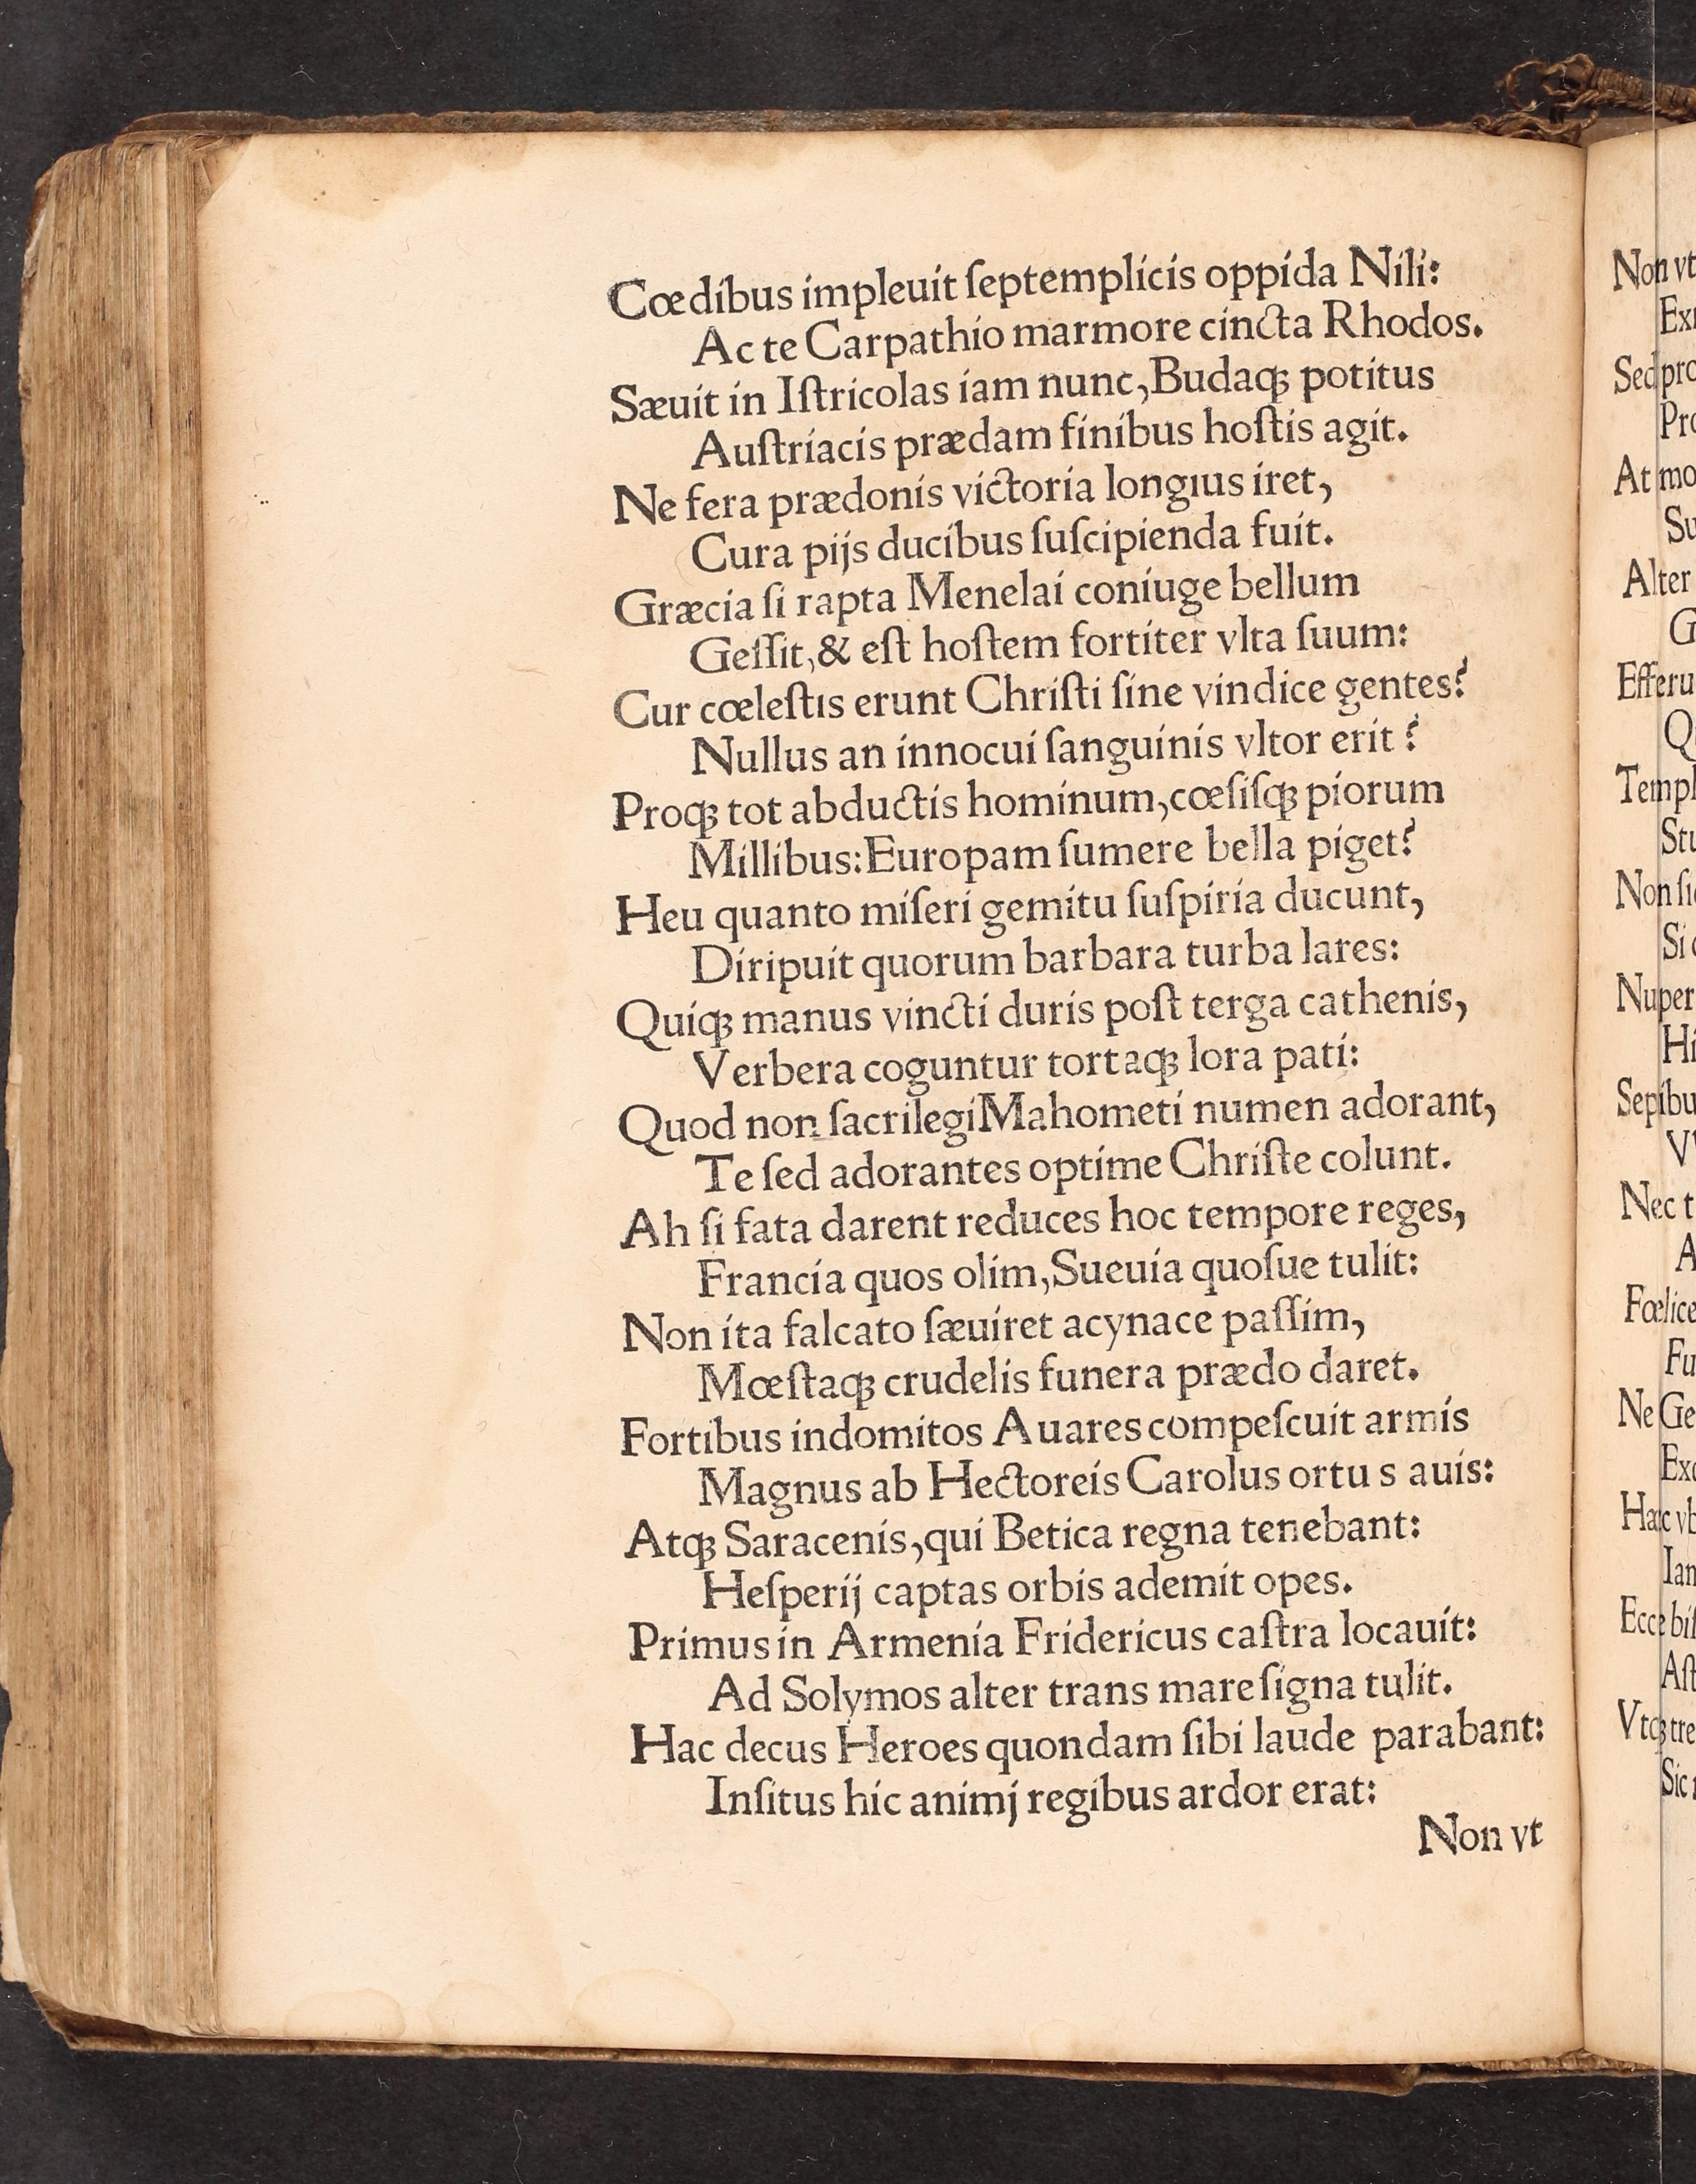 Cœdibus impleuit ſeptemplicis oppida Nili:
Ac te Carpathio marmore cincta Rhodos.
Sæuit in Iſtricolas iam nunc, Budaqꝫ potitus
Auſtriacis prædam finibus hoſtis agit.
Ne fera prædonis victoria longius iret,
Cura pijs ducibus ſuſcipienda fuit.
Græcia ſi rapta Menelai coniuge bellum
Geſſit, & eſt hoſtem fortiter vlta ſuum:
Cur cœleſtis erunt Chriſti ſine vindice gentes?
Nullus an innocui ſanguinis vltor erit?
Proqꝫ tot abductis hominum, cœſiſqꝫ piorum
Millibus: Europam ſumere bella piget?
Heu quanto miſeri gemitu ſuſpiria ducunt,
Diripuit quorum barbara turba lares:
Quiqꝫ manus vincti duris poſt terga cathenis,
Verbera coguntur tortaqꝫ lora pati:
Quod non ſacrilegi Mahometi numen adorant,
Te ſed adorantes optime Chriſte colunt.
Ah ſi fata darent reduces hoc tempore reges,
Francia quos olim, Sueuia quoſue tulit:
Non ita falcato ſæuiret acynace paſſim,
Mœſtaqꝫ crudelis funera prædo daret.
Fortibus indomitos Auares compeſcuit armis
Magnus ab Hectoreis Carolus ortu s auis:
Atqꝫ Saracenis, qui Betica regna tenebant:
Heſperij captas orbis ademit opes.
Primus in Armenia Fridericus caſtra locauit:
Ad Solymos alter trans mare ſigna tulit.
Hac decus Heroes quondam ſibi laude parabant:
Inſitus hic animj regibus ardor erat:
Non vt
Non vt
Alter
Nuper
Nec t